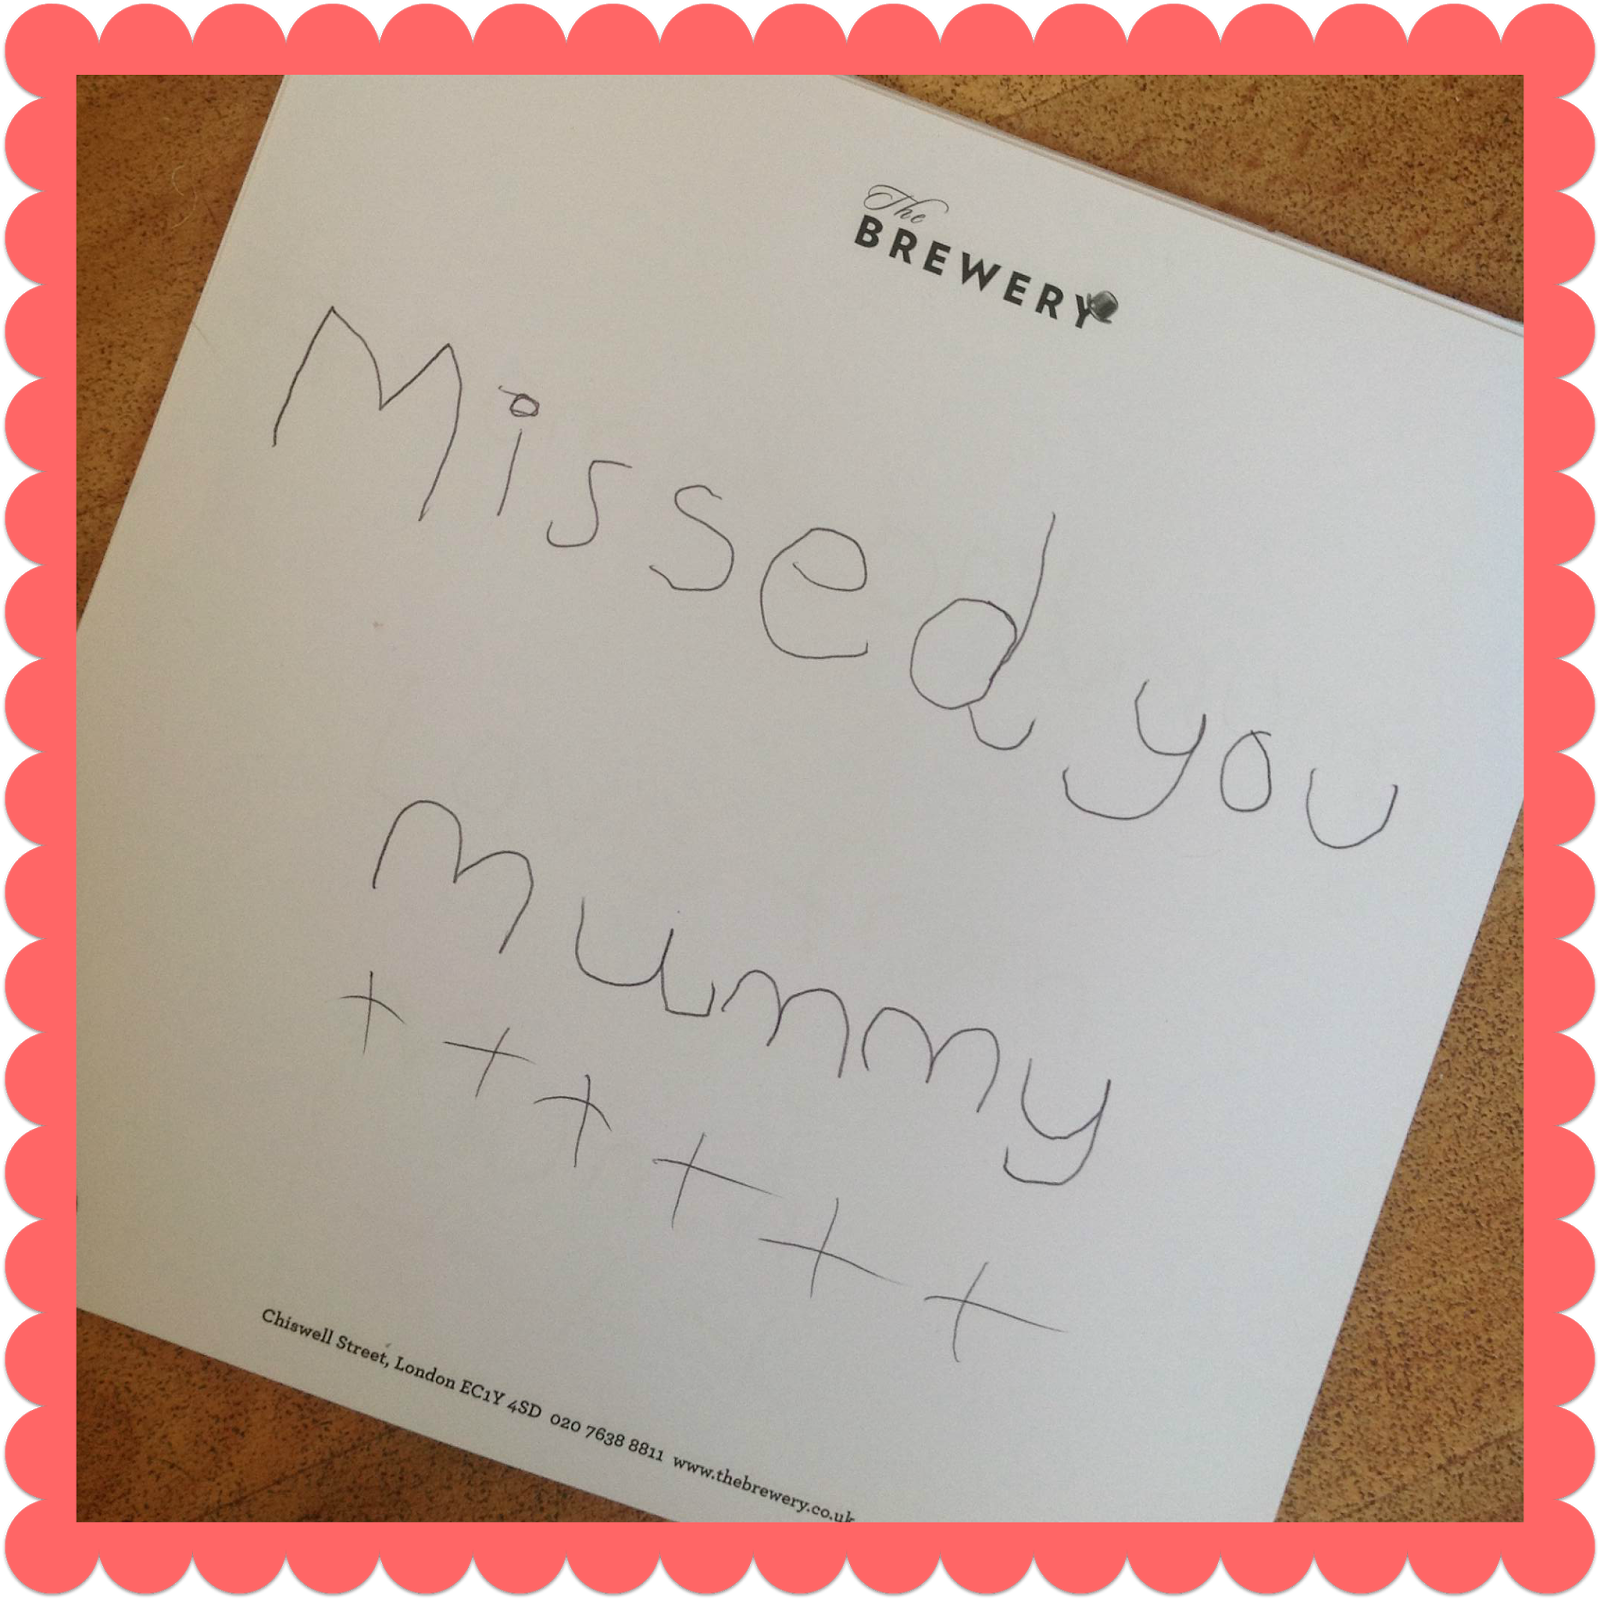 The
BREWERY
Missed you
Mummy
++++++
Chiswell Street, London EC1Y 4SD 020 7638 8811 www.thebrewery.co.uk